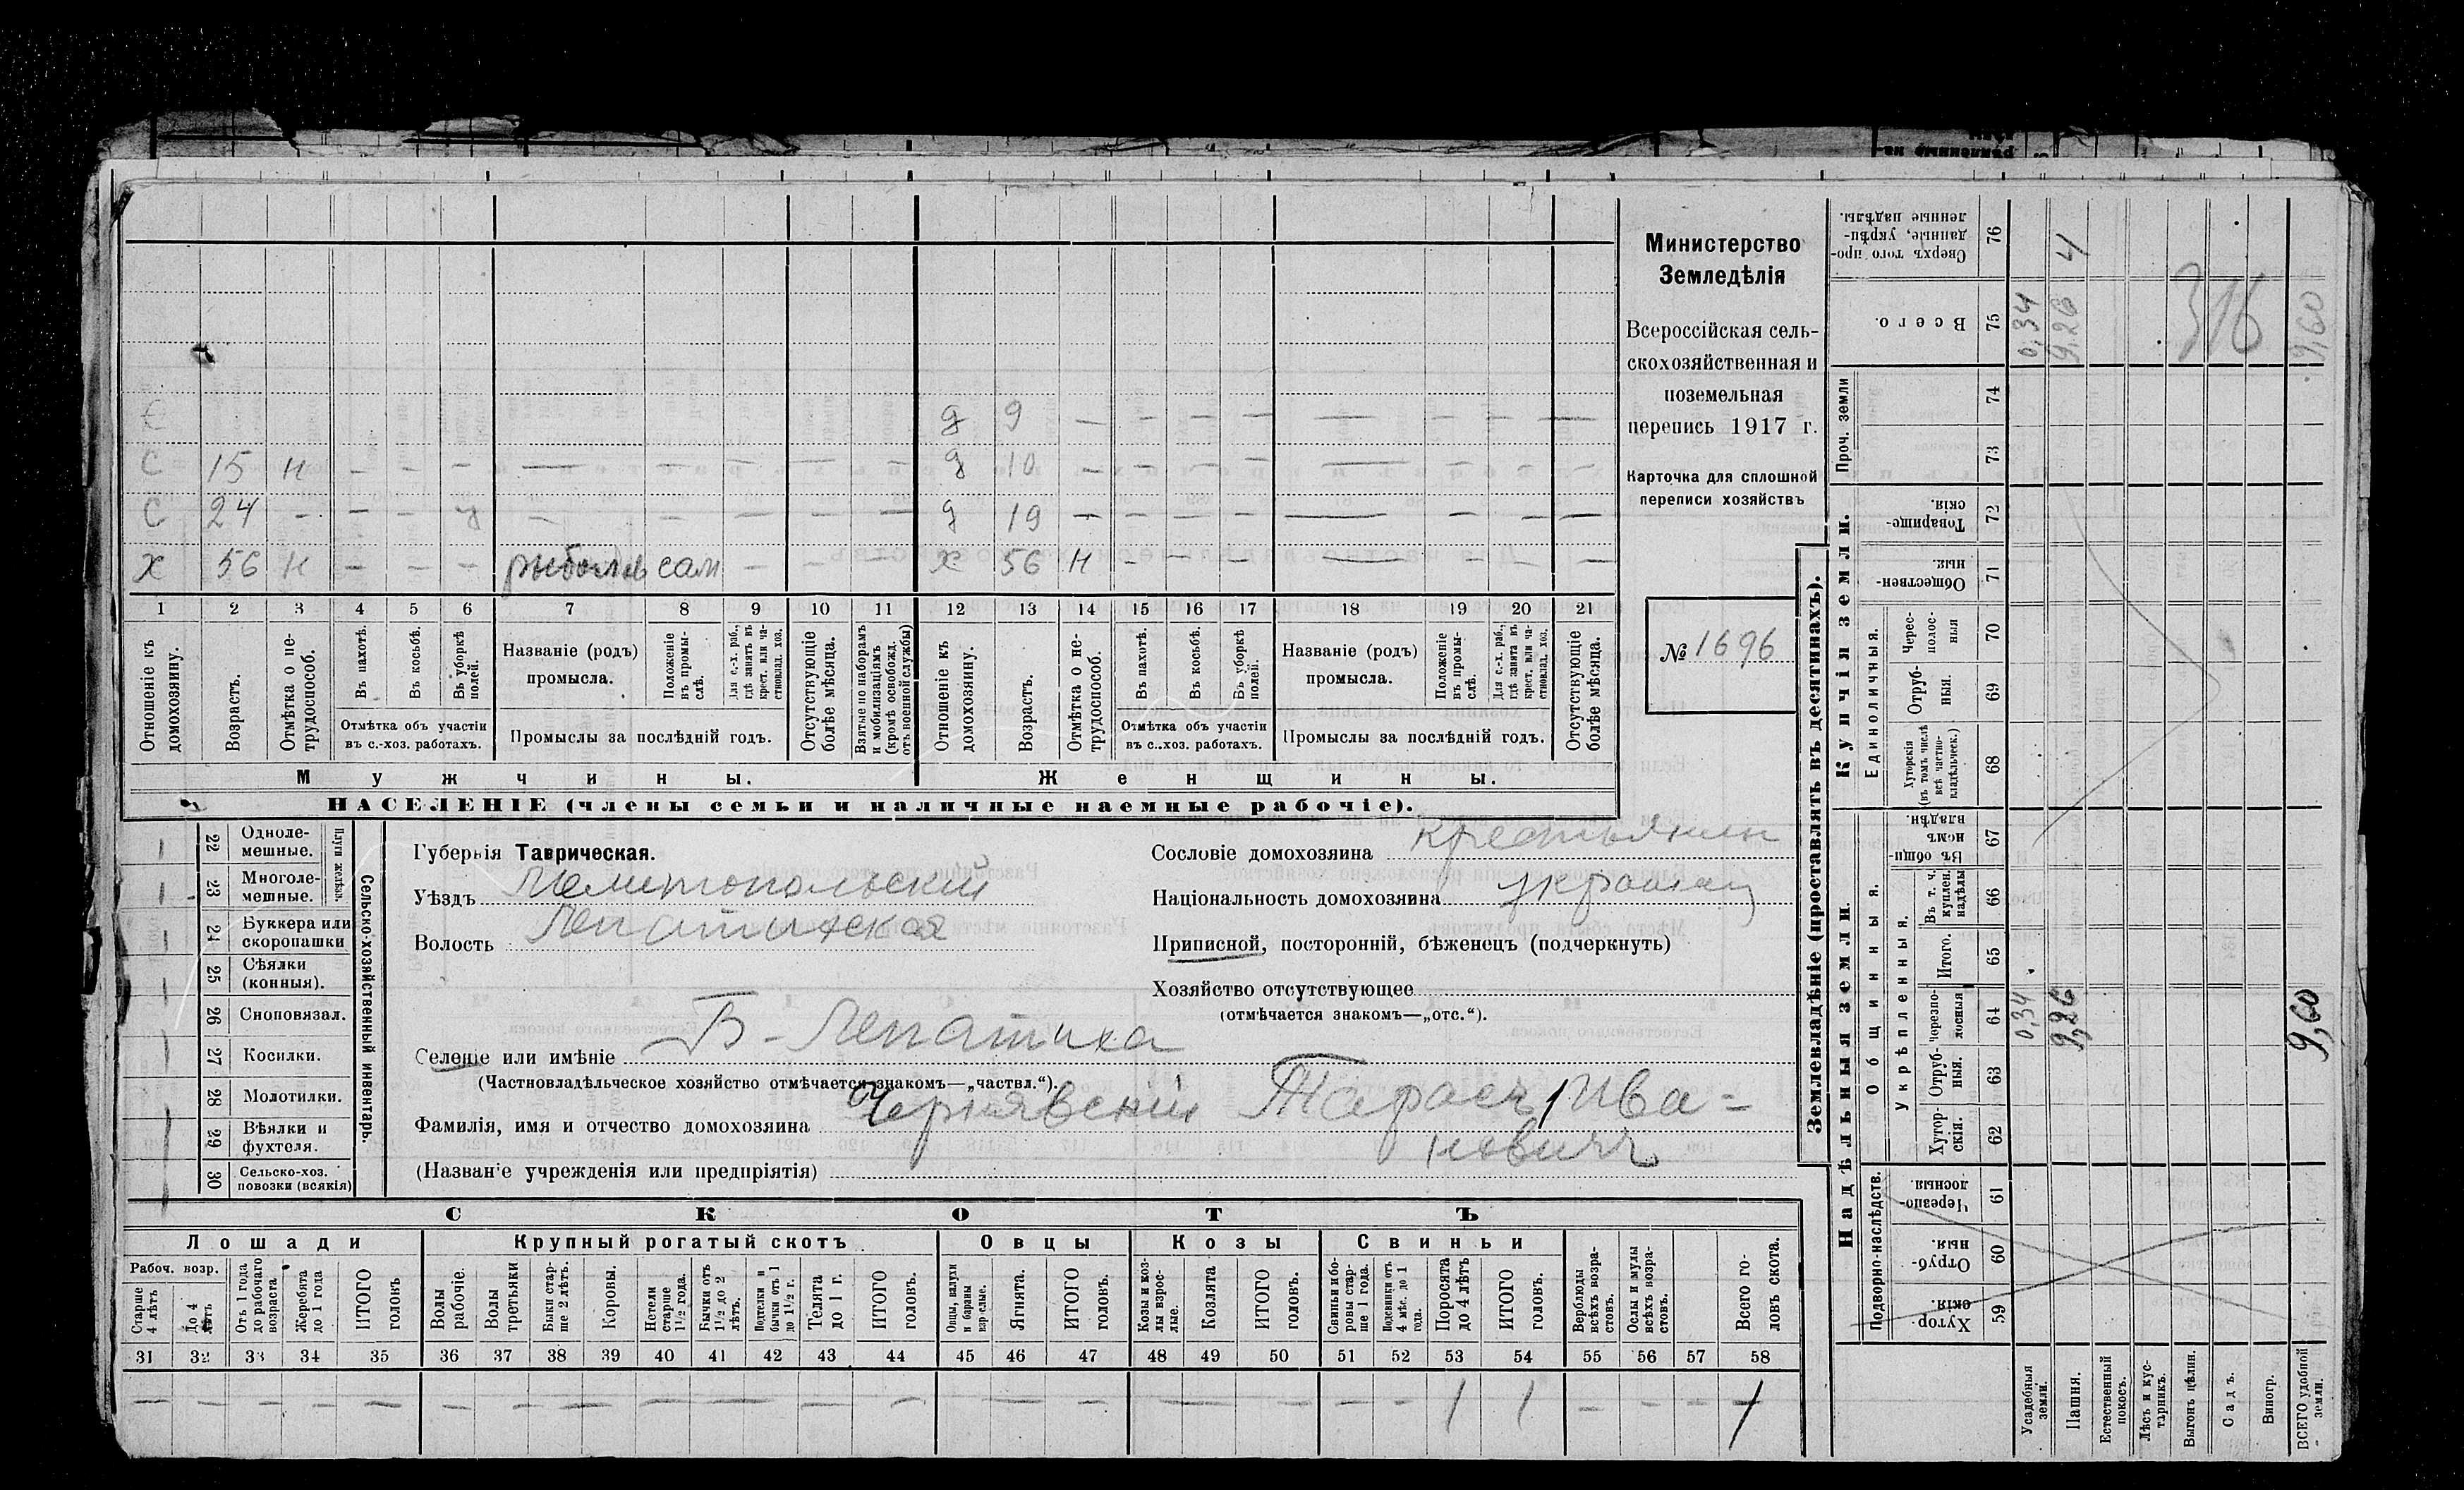 Министерство
Земледѣлія
Всероссійская сель-
скохозяйственная и
поземельная
перепись 1917 г.
Карточка для сплошной
переписи хозяйствъ
№ 1696
д 9 — — — — — — — —
С 15 н — — — — — — — — д 10 — — — — — — — —
С 24 — — — у — — — — — д 19 — — — — — — — —
х 56 н — — — рыболов сам — — — х 56 н — — — — — — —
1 2 3 4 5 6 7 8 9 10 11 12 13 14 15 16 17 18 19 20 21
Отношеніе къ домохозяину.
Возрастъ.
Отмѣтка о не-трудоспособ.
Въ пахотѣ.
Въ косьбѣ.
Въ уборкѣ полей.
Отмѣтка объ участіи
въ с.-хоз. работахъ.
Названіе (родъ)
промысла.
Положеніе въ промы-слѣ.
Для с.-х. раб., гдѣ занятъ въ крест. или ча-стновлад. хоз.
Промыслы за послѣдній годъ.
Отсутствующіе болѣе мѣсяца.
Взятые по наборамъ и мобилизаціямъ (кромѣ освобожд. отъ военной службы)
Отношеніе къ домохозяину.
Возрастъ.
Отмѣтка о не-трудоспособ.
Въ пахотѣ.
Въ косьбѣ.
Въ уборкѣ полей.
Отмѣтка объ участіи
въ с.-хоз. работахъ.
Названіе (родъ)
промысла.
Положеніе въ промы-слѣ.
Для с.-х. раб., гдѣ занята въ крест. или ча-стновлад. хоз.
Промыслы за послѣдній годъ.
Отсутствующіе болѣе мѣсяца.
Мужчины. Женщины.
НАСЕЛЕНІЕ (члены семьи и наличные наемные рабочіе).
Сельско-хозяйственный инвентарь.
Плуги желѣзн.
22 Одноле-мешные.
23 Многоле-мешные.
24 Буккера или скоропашки
25 Сѣялки (конныя).
26 Сноповязал.
27 Косилки.
28 Молотилки.
29 Вѣялки и фухтеля.
30 Сельско-хоз. повозки (всякія)
Губернія Таврическая.
Уѣздъ Мелитопольскій
Волость Лепатихская
Селеніе или имѣніе Б-Лепатиха
(Частновладѣльческое хозяйство отмѣчается знакомъ—„частвл.“).
Фамилія, имя и отчество домохозяина Чернявскій Тарасъ Ива=
новичъ
(Названіе учрежденія или предпріятія)
Сословіе домохозяина крестьянин
Національность домохозяина украинец
Приписной, посторонній, бѣженецъ (подчеркнуть)
Хозяйство отсутствующее
(отмѣчается знакомъ—„отс.“).
СКОТЪ
Лошади Крупный рогатый скотъ Овцы Козы Свиньи
Рабоч. возр.
Старше 4 лѣтъ
До 4 лѣтъ
Отъ 1 года до рабочаго возраста
Жеребята до 1 года
ИТОГО головъ
Волы рабочіе.
Волы третьяки
Быки стар-ше 2 лѣтъ.
Коровы.
Нетели старше 1½ года.
Бычки отъ 1½ до 2 лѣтъ.
Подтелки и бычки отъ 1 до 1½ г.
Телята до 1 г.
ИТОГО головъ.
Овцы, валухи и бараны взрослые.
Ягнята.
ИТОГО головъ.
Козы и коз-лы взрос-лые.
Козлята
ИТОГО головъ.
Свиньи и бо-ровы стар-ше 1 года.
Подсвинки отъ 4 мѣс. до 1 года.
Поросята до 4 лѣтъ
ИТОГО головъ.
Верблюды всѣхъ возра-стовъ.
Ослы и мулы всѣхъ возра-стовъ.
Всего го-ловъ скота.
31 32 33 34 35 36 37 38 39 40 41 42 43 44 45 46 47 48 49 50 51 52 53 54 55 56 57 58
— — — — — — — — — — — — — — — — — — — — — — 1 1 — — — 1
Землевладѣніе (проставлять въ десятинахъ).
Купчія земли.
Надѣльныя земли.
Сверхъ того про-данные, укрѣп-ленные надѣлы. 76 4
Всего. 75 0,34 9,26 316 9,60
Проч. земли 74
73
Товарище-скія. 72
Обществен-ныя. 71
Единоличныя.
Черес-полос-ныя 70
Отруб-ныя. 69
Хуторскія (въ томъ числѣ всѣ частно-владѣльческ.) 68
Общинныя.
Въ общи-номъ владѣн. 67
Укрѣпленныя.
Въ т. ч. куплен. надѣлы 66
Итого. 65
Черезпо-лосныя 64 0,34 9,26 9,60
Отруб-ныя. 63
Хутор-скія. 62
Подворно-наслѣдств.
Черезпо-лосныя 61
Отруб-ныя. 60
Хутор-скія. 59
Усадебныя земли.
Пашня.
Естественный покосъ.
Лѣсъ и кус-тарникъ.
Выгонъ цѣлин.
Садъ.
Виногр.
ВСЕГО удобной земли.